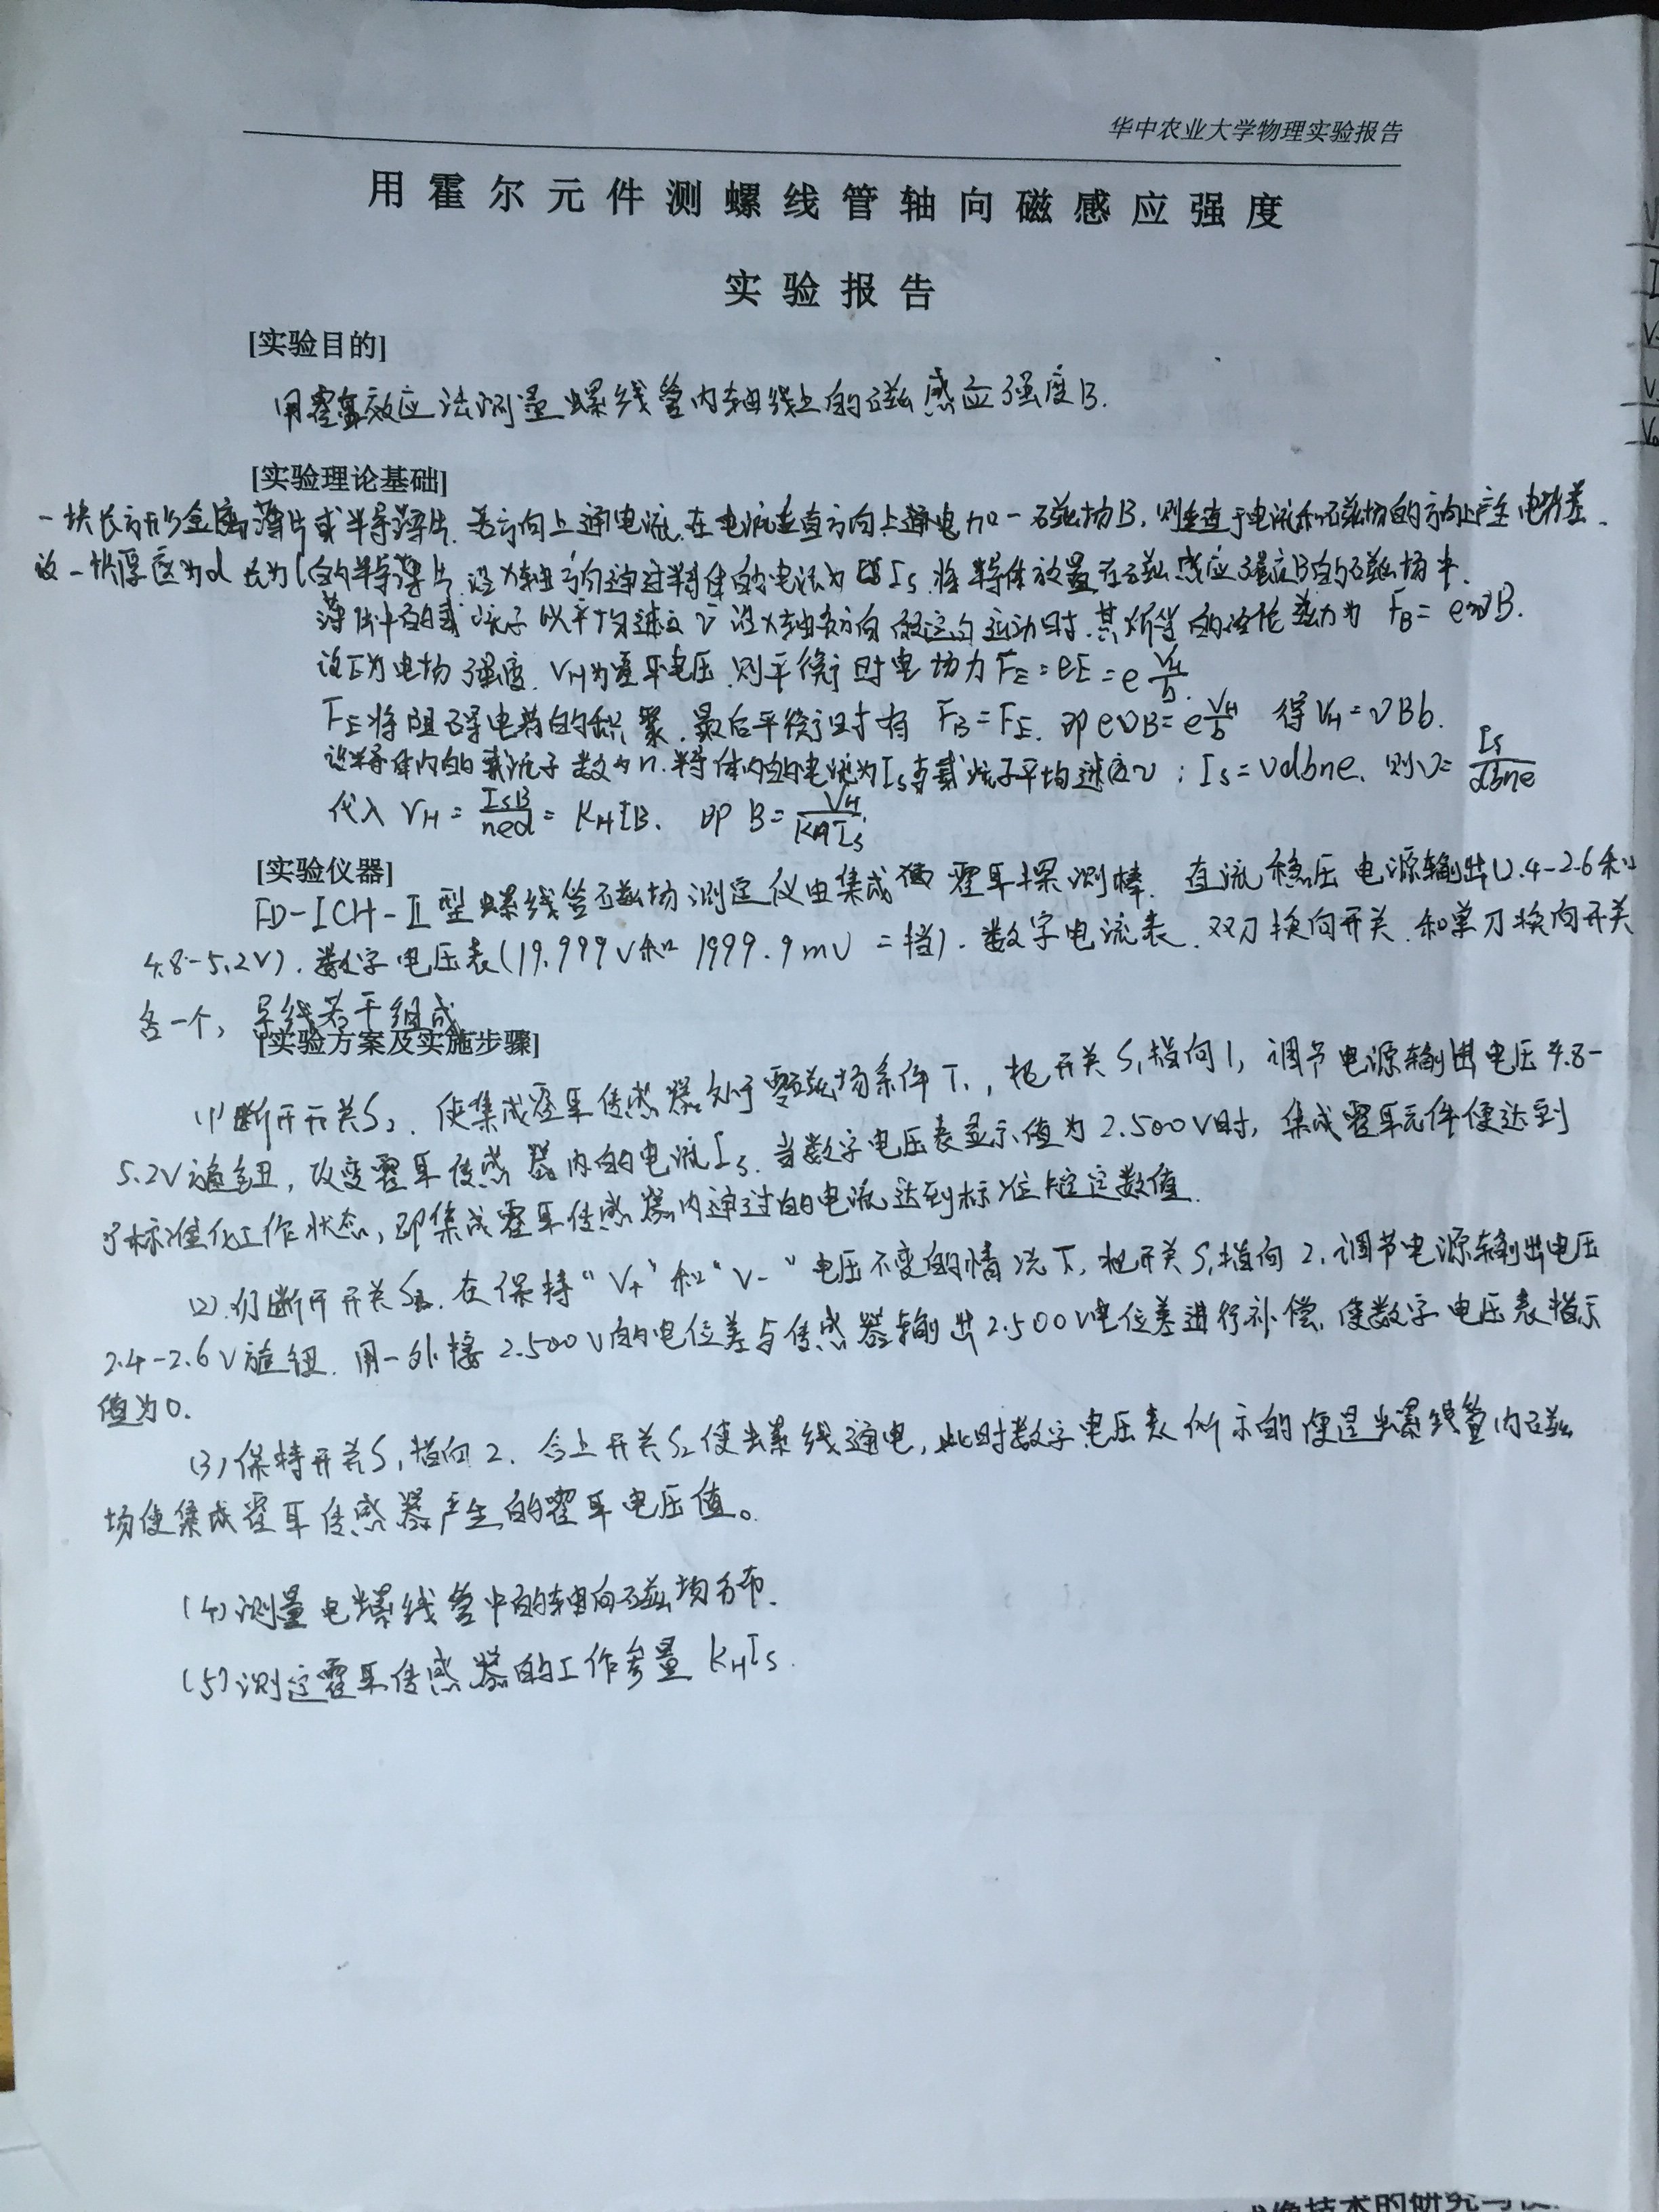 华中农业大学物理实验报告
用霍尔元件测螺线管轴向磁感应强度
实验报告
[实验目的]
用霍耳效应法测量螺线管内轴线上的磁感应强度B.
[实验理论基础]
一块长方形金属薄片或半导薄片.若方向上通电流.在电流垂直方向上通电加一磁场B,则垂直于电流和磁场的方向上产生电势差.
设一块厚度为d 长为l的半导薄片.设X轴方向通过半导体的电流为Is.将半导体放置在磁感应强度B的磁场中.
薄片中的载流子以平均速度v沿X轴负方向做定向运动时.其所受的洛伦兹力为 FB=evB.
设E为电场强度.VH为霍耳电压.则平衡时电场力FE=eE=e VH/b.
FE将阻碍电荷的积聚.最后平衡时有 FB=FE.即evB=e VH/b 得VH=vBb.
设半导体内的载流子数为n.半导体内的电流为Is与载流子平均速度v;Is=vdbne.则v=Is/dbne
代入 VH=IsB/ned=KHIB. 即 B=VH/KHIs.
[实验仪器]
FD-ICH-II型螺线管磁场测定仪由集成霍耳探测棒.直流稳压电源输出(2.4-2.6和
4.8-5.2V).数字电压表(19.999V和1999.9mV二档).数字电流表.双刀换向开关.和单刀换向开关
各一个,导线若干组成
[实验方案及实施步骤]
(1)断开开关S2.使集成霍耳传感器处于零磁场条件下,把开关S1指向1,调节电源输出电压4.8-
5.2V旋钮,改变霍耳传感器内的电流Is.当数字电压表显示值为2.500V时,集成霍耳元件便达到
了标准化工作状态,即集成霍耳传感器内通过的电流达到标准规定数值.
(2).仍断开开关S2.在保持“V+”和“V-”电压不变的情况下,把开关S1指向2.调节电源输出电压
2.4-2.6V旋钮.用一外接2.500V的电位差与传感器输出2.500V电位差进行补偿,使数字电压表指示
值为0.
(3)保持开关S1指向2.合上开关S2使螺线通电,此时数字电压表所示的便是螺线管内磁
场使集成霍耳传感器产生的霍耳电压值。
(4)测量电螺线管中的轴向磁场分布.
(5)测定霍耳传感器的工作参量 KHIs.